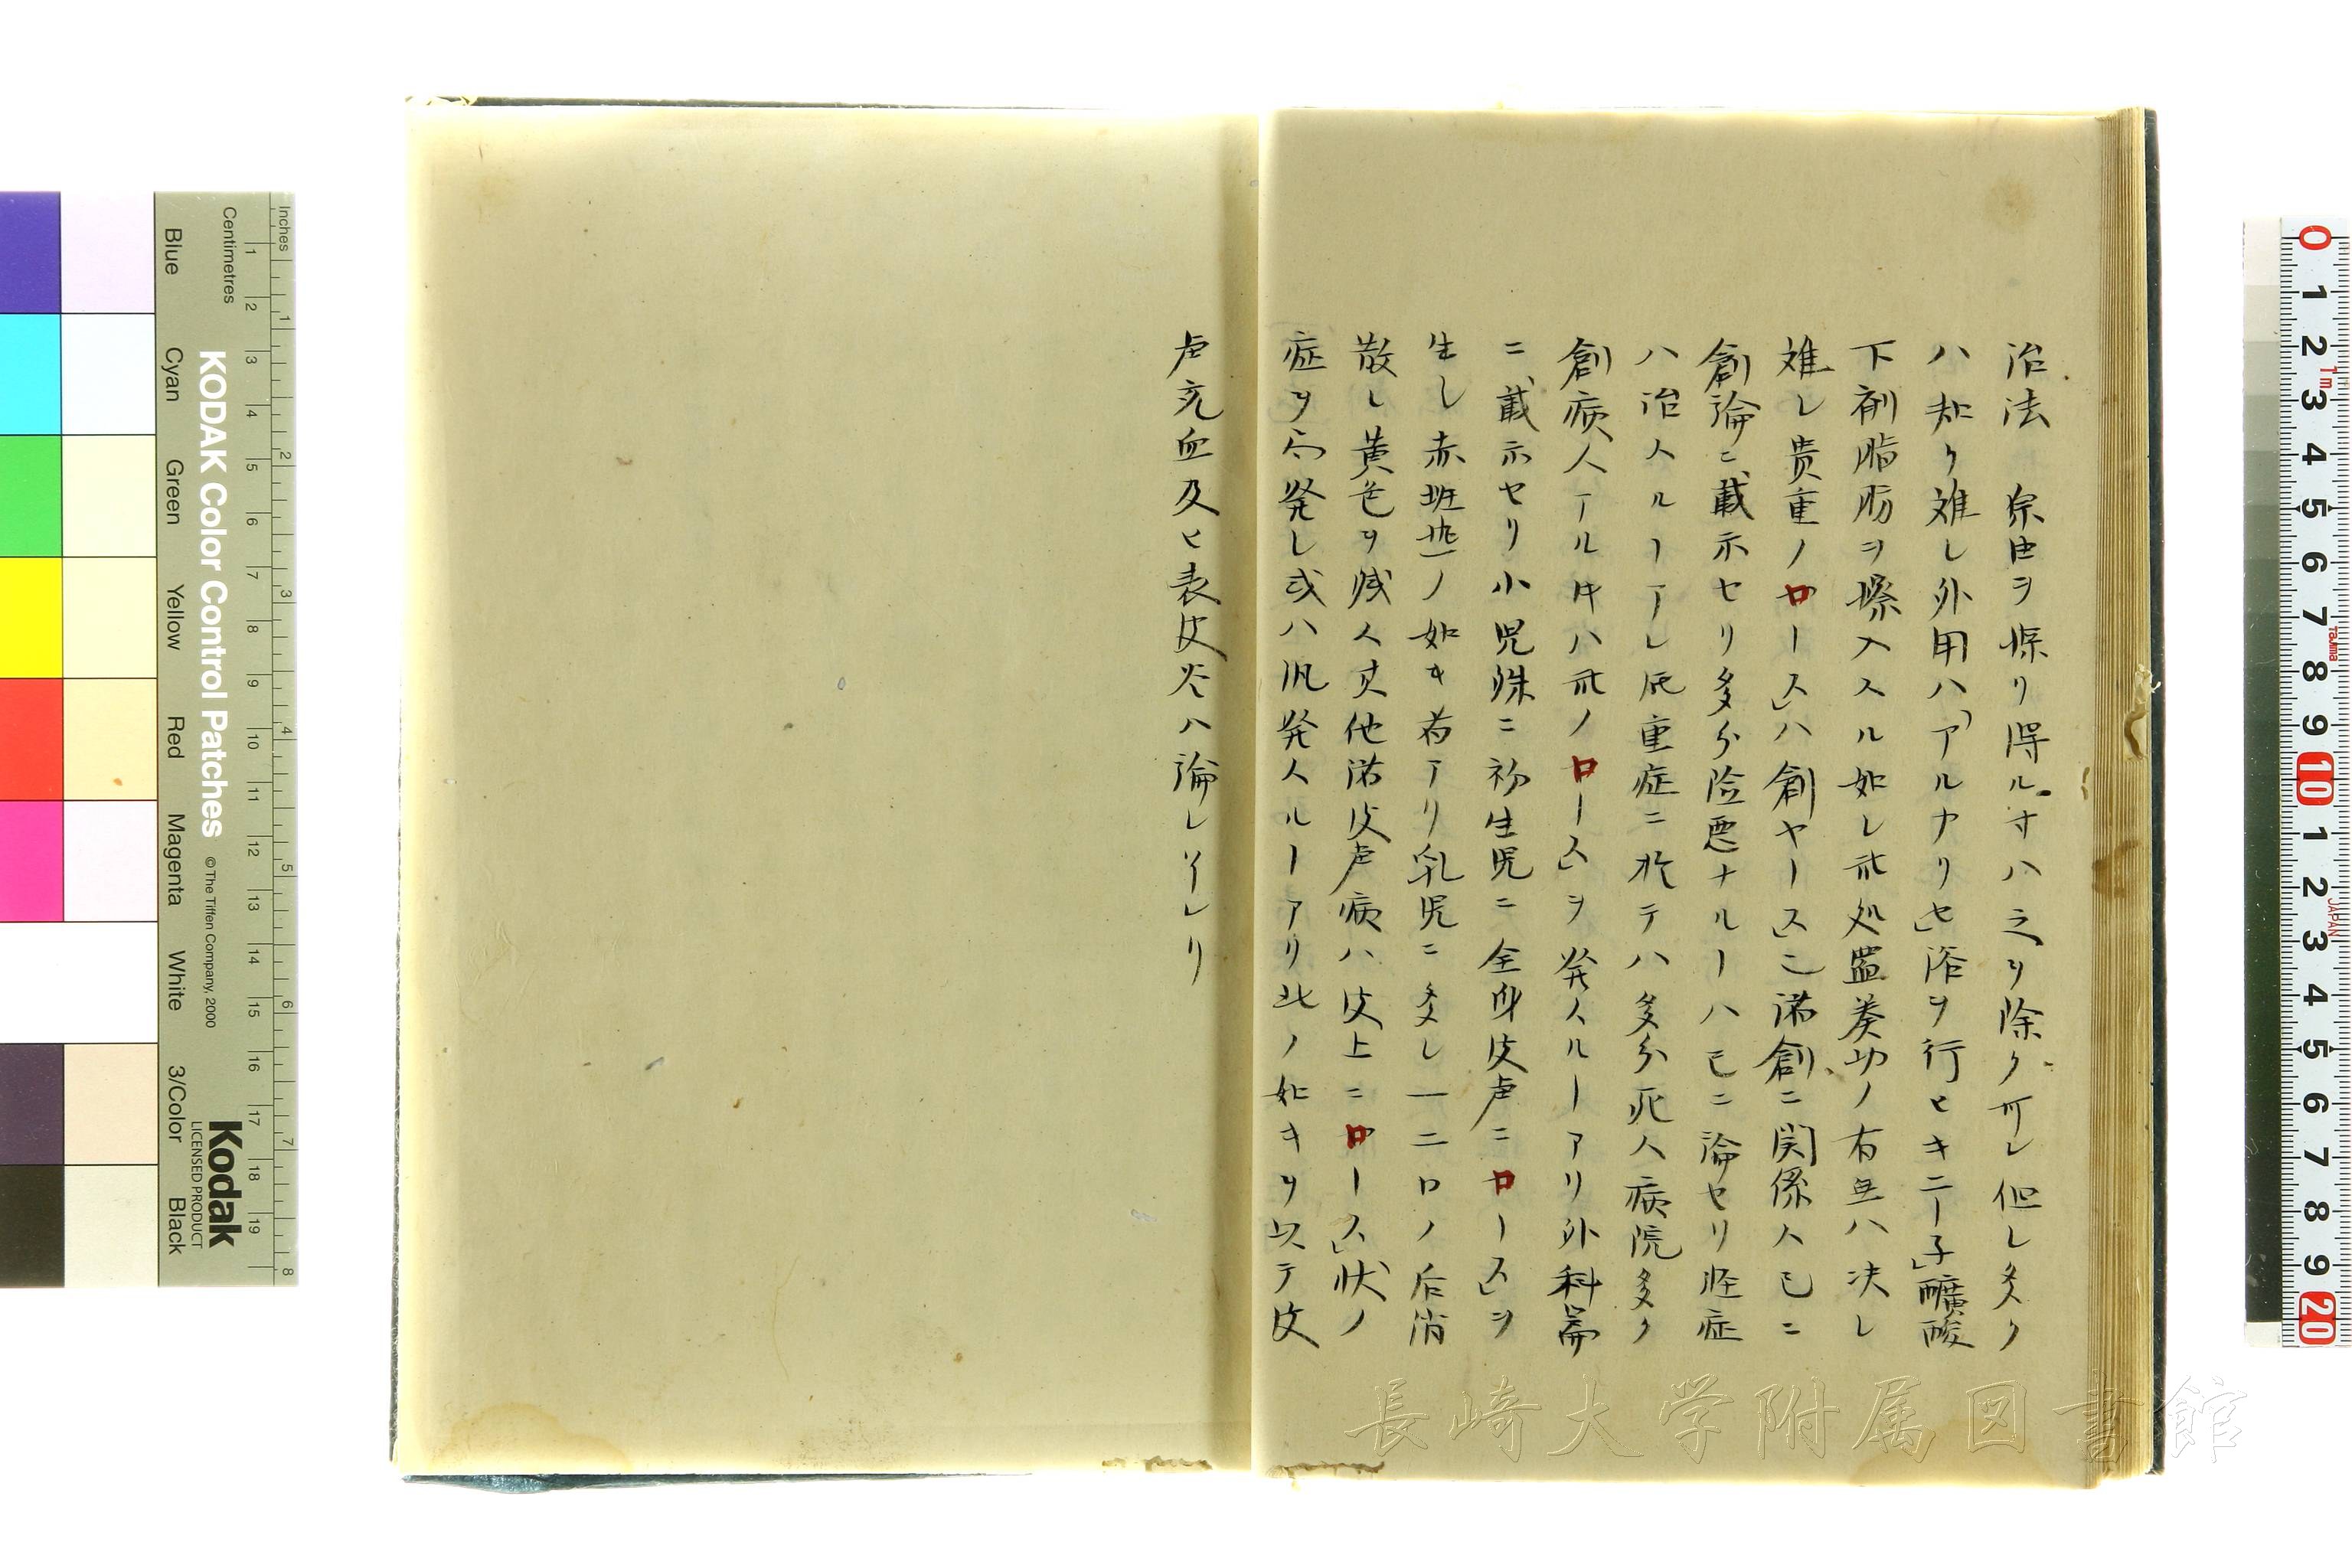 治法 原由ヲ探リ得ルヿハ之ヲ除ク可レ但し多ク
ハ知リ難し外用ハアルナリセ」浴ヲ行ヒキニー子」礦酸
下剤脂肪ヲ擦入スル如し此処置奏功ノ有無ハ決し
難し貴重ノロースハ創ヤース」ニ諸創ニ関係ス已ニ
創論ニ載示セリ多分険悪ナルヿハ已ニ論セリ軽症
ハ治スルヿアレ𪜈重症ニ於テハ多分死ス病院多ク
創病人アル時ハ此ノロース」ヲ発スルヿアリ外科篇
ニ載示セリ小児殊ニ初生児ニ全身皮膚ニロース」ヲ
生し赤斑点ノ如キ者アリ乳児ニ多し一二日ノ后消
散し黄色ヲ残ス其他諸皮膚病ハ皮上ニロース」状ノ
症ヲ発し或ハ汎発スルヿアリ此ノ如キヲ以テ皮
膚充血及ヒ表皮炎ハ論し了レリ
長崎大学附属図書館
KODAK Color Control Patches
© The Tiffen Company, 2000
Kodak
LICENSED PRODUCT
Inches
Centimetres
Blue
Cyan
Green
Yellow
Red
Magenta
White
3/Color
Black
1 2 3 4 5 6 7 8 9 10 11 12 13 14 15 16 17 18 19
1 2 3 4 5 6 7 8
0 1 2 3 4 5 6 7 8 9 10 1 2 3 4 5 6 7 8 9 20
1m
Tajima
JAPAN